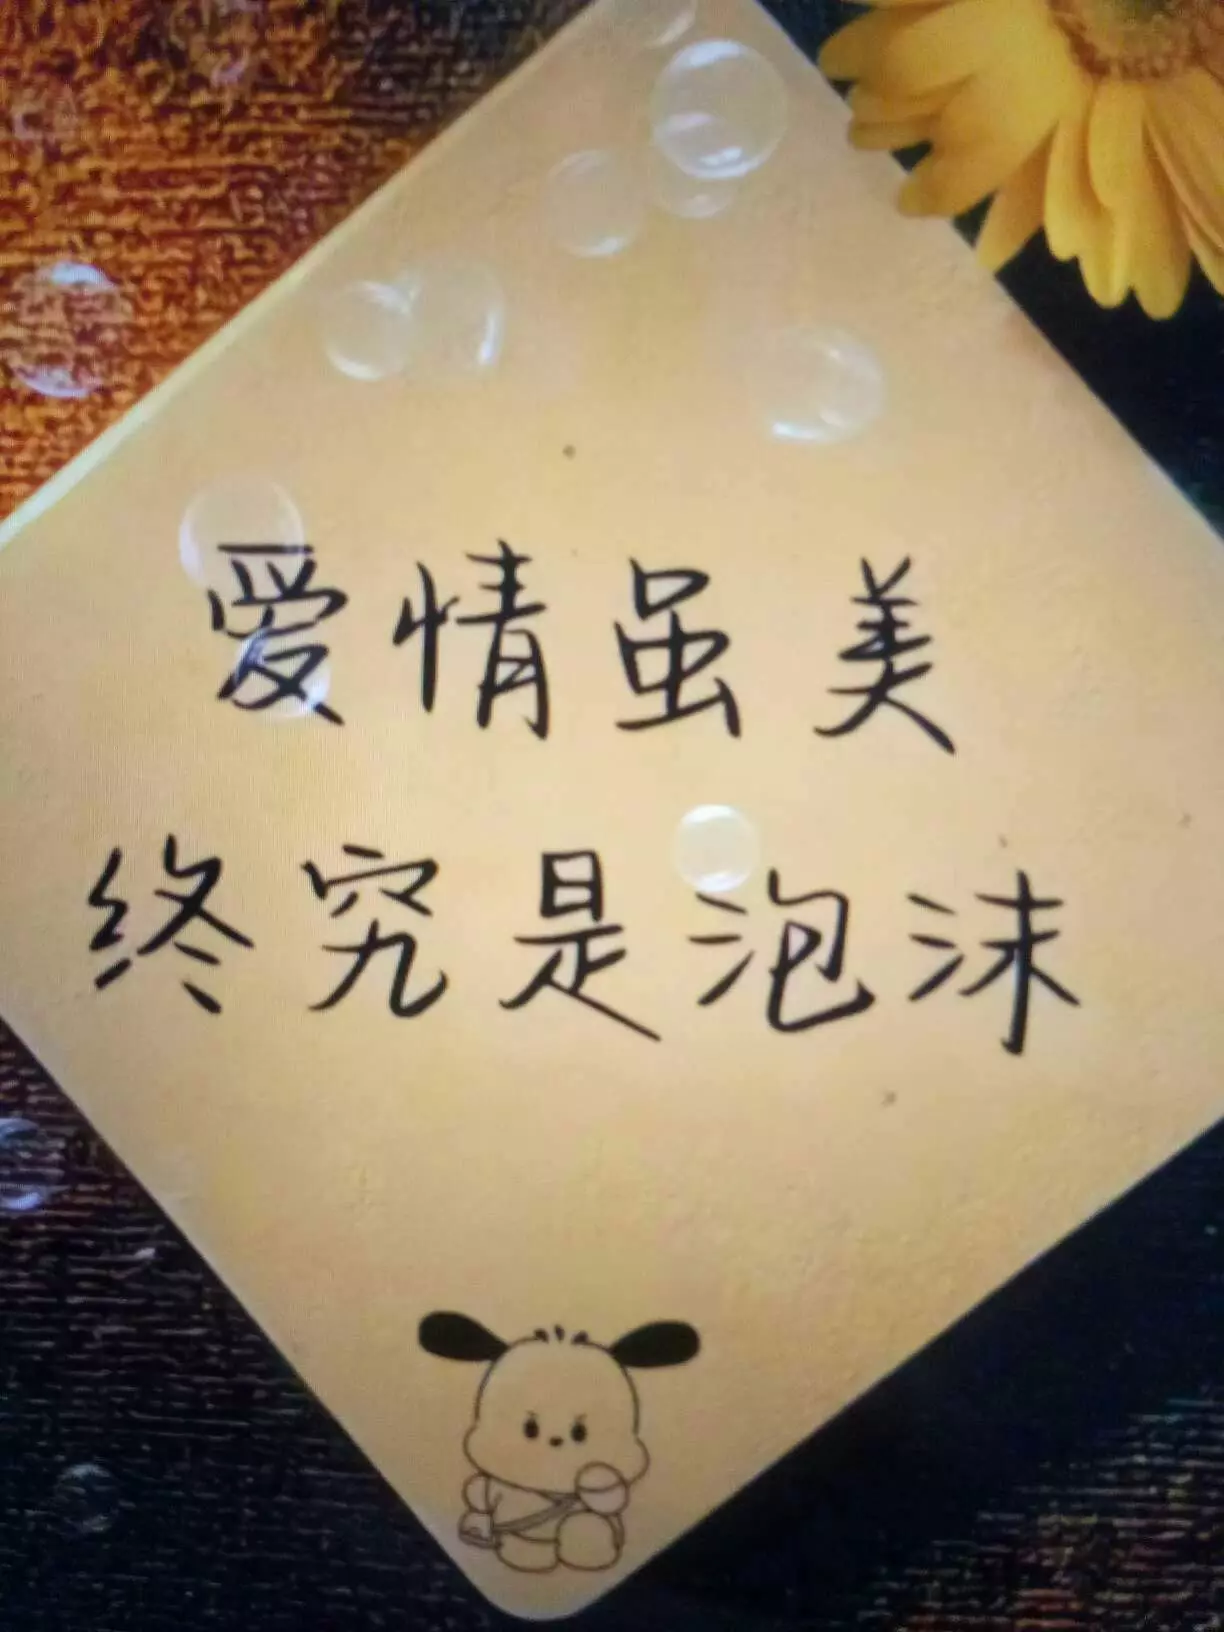 爱情虽美
终究是泡沫